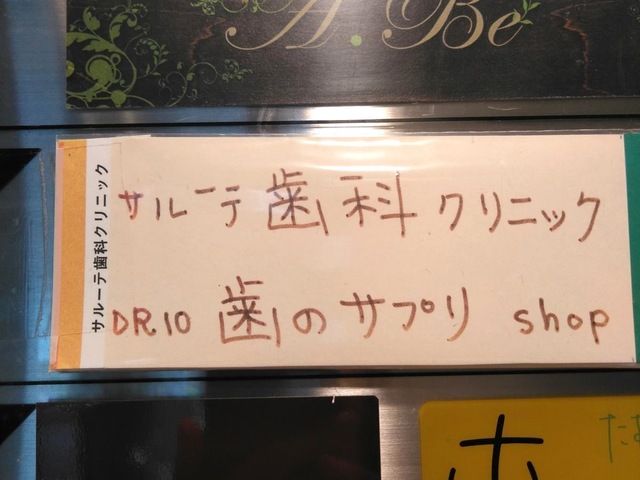 A. Be
サルーテ歯科クリニック
サルーテ歯科クリニック
DR.10 歯のサプリ shop